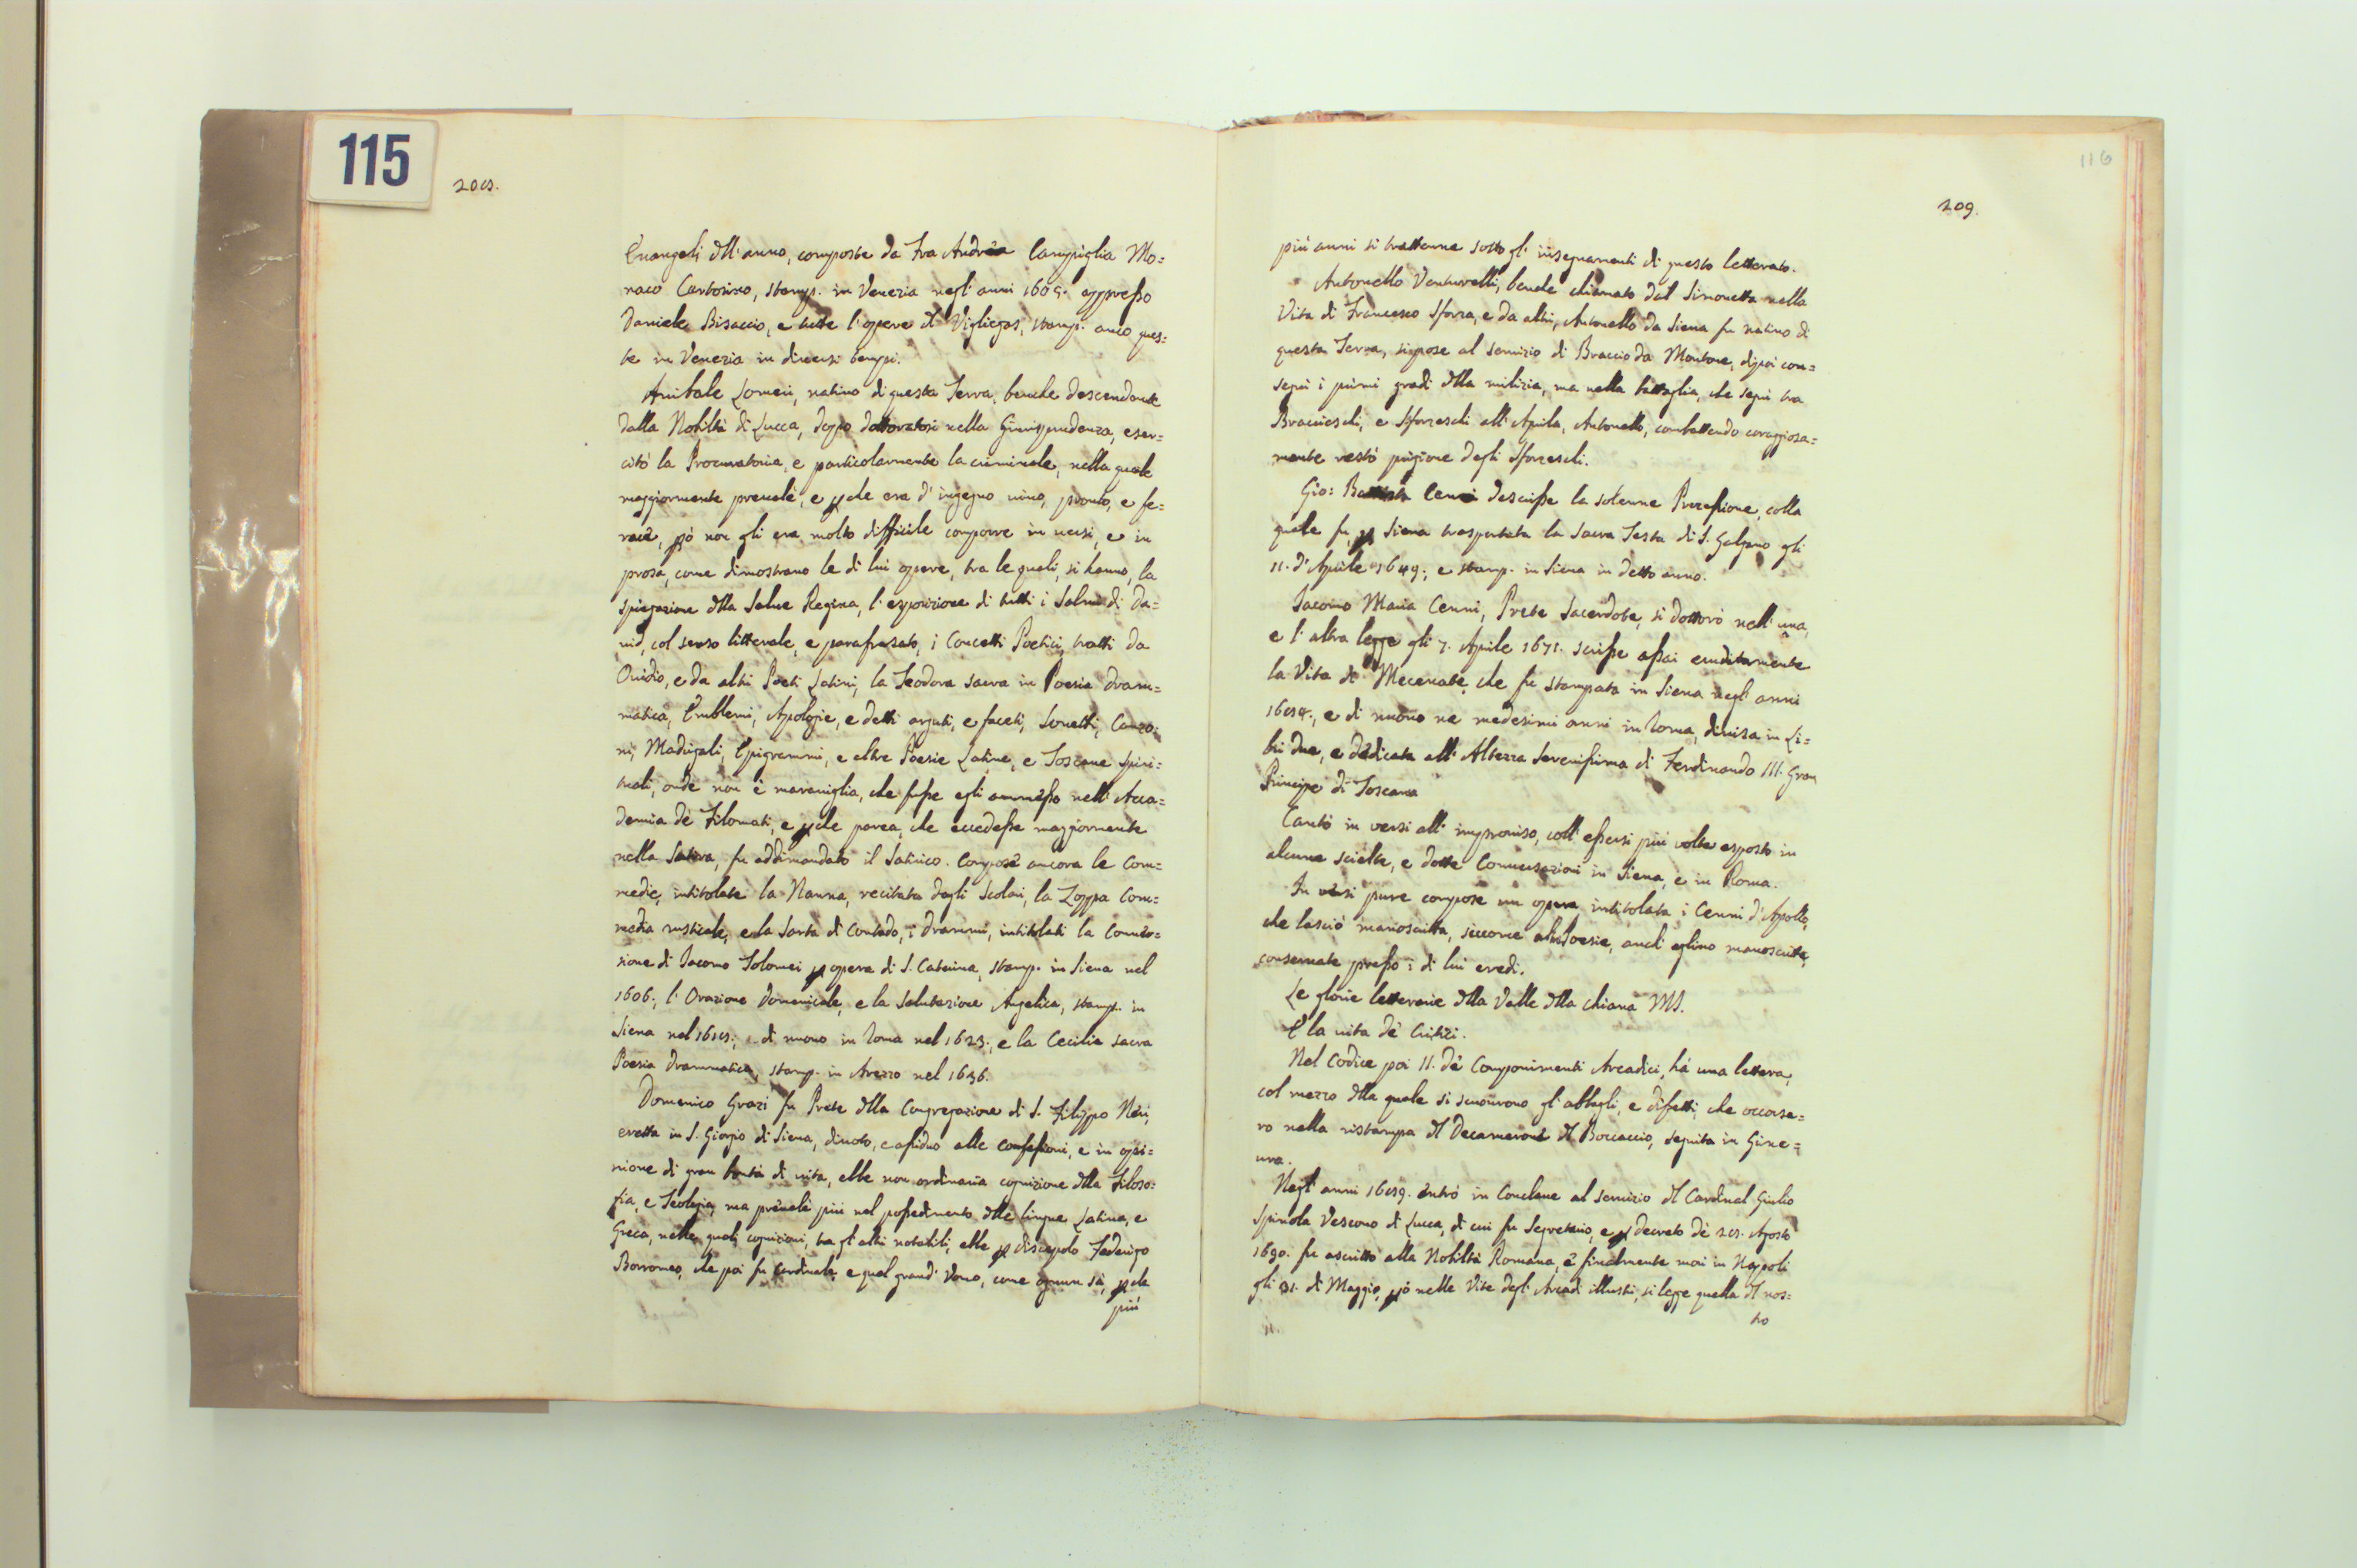 115
208.
Euangeli dll'anno, composte da Fra Andrea Campiglia Mo=
naco Certosino, stamp. in Venezia negl'anni 1605. appresso
Daniele Bisaccio, e tutte l'opere dl Vigliegas, stamp. anco ques=
te in Venezia in diuersi tempi.
Anibale Lomeri, natiuo di questa Terra, benche descendente
dalla Nobiltà di Lucca, dopo dottoratosi nella Giurisprudenza, eser=
citò la Procuratoria, e particolarmente la criminale, nella quale
maggiormente preualè, e pche era d'ingegno uiuo, pronto, e fe=
race, pò non gli era molto difficile comporre in uersi, e in
prosa, come dimostrano le di lui opere, tra le quali, si hanno, la
spiegazione dlla Salue Regina, l'esposizione di tutti i Salmi di Da=
uid, col senso litterale, e parafrasato, i Concetti Poetici, tratti da
Ouidio, e da altri Poeti Latini, la Teodora sacra in Poesia dram=
matica, Emblemi, Apologie, e detti arguti, e faceti, Sonetti, Canzo=
ni, Madrigali, Epigrammi, e altre Poesie Latine, e Toscane spiri=
tuali, onde non è marauiglia, che fusse egli ammesso nell'Acca=
demia de' Filomati, e pche parea, che eccedesse maggiormente
nella Satira, fu addimandato il Satirico. Compose ancora le Com=
medie, intitolate la Nanna, recitata dagli Scolari, la Zoppa Com=
media rusticale, e la Sarta di Contado, i drammi, intitolati la Conuer=
sione di Iacomo Tolomei p opera di S. Caterina, stamp. in Siena nel
1606; l'Orazione domenicale, e la Salutazione Angelica, stamp. in
Siena nel 1618; e di nuouo in Roma nel 1623; e la Cecilia sacra
Poesia drammatica, stamp. in Arezzo nel 1636.
Domenico Grazi fu Prete dlla Congregazione di S. Filippo Neri,
eretta in S. Giorgio di Siena, diuoto, e assiduo alle confessioni, e in opi=
nione di gran bontà di uita, ebbe non ordinaria cognizione dlla Filoso=
fia, e Teologia, ma preualè più nel possedimento dlle lingue Latina, e
Greca, nelle quali cognizioni, tra gl'altri notabili, ebbe p discepolo Federigo
Borromeo, che poi fu Cardinale, e quel grand'Uomo, come ognun sà, pche
più
116
209.
più anni si trattenne sotto gl'insegnamenti di questo letterato.
Antonello Venturelli, benche chiamato dal Simonetta nella
Vita di Francesco Sforza, e da altri, Antonello da Siena fu natiuo di
questa Terra, si pose al seruizio di Braccio da Montone, dipoi con=
seguì i primi gradi dlla milizia, ma nella battaglia, che seguì tra
Braccieschi, e Sforzeschi all'Aquila, Antonello, combattendo coraggiosa=
mente restò prigione degli Sforzeschi.
Gio: Battista Cenni descrisse la solenne Processione, colla
quale fu p Siena trasportata la Sacra Testa di S. Galgano gli
11. d'Aprile 1649; e stamp. in Siena in detto anno.
Iacomo Maria Cenni, Prete Sacerdote, si dottorò nell'una,
e l'altra legge gli 7. Aprile 1671. scrisse assai eruditamente
la Vita di Mecenate, che fu stampata in Siena negl'anni
1684., e di nuouo ne medesimi anni in Roma, diuisa in Li=
bri due, e dedicata all'Altezza Serenissima di Ferdinando III. Gran
Principe di Toscana
Cantò in uersi all'improuiso, coll'essersi più uolte esposto in
alcune scielte, e dotte Conuersazioni in Siena, e in Roma.
In uersi pure compose un opera intitolata i Cenni d'Apollo,
che lasciò manoscritta, siccome altre Poesie, anch'eglino manoscritte,
conseruate presso i di lui eredi.
Le glorie letterarie dlla Valle dlla Chiana MS.
E la uita de' Critizi.
Nel Codice poi 11. de' Componimenti Arcadici, hà una lettera,
col mezzo dlla quale si scuoprono gl'abbagli, e difetti, che occorse=
ro nella ristampa dl Decamerone dl Boccaccio, seguita in Gine=
ura.
Negl'anni 1689. entrò in Conclaue al seruizio dl Cardinal Giulio
Spinola Vescouo di Lucca, di cui fu Segretario, e p decreto de' 28. Agosto
1690. fu ascritto alla Nobiltà Romana, e finalmente morì in Napoli
gli 31. di Maggio, pò nelle Vite degli Arcadi illustri, si legge quella dl nos=
tro